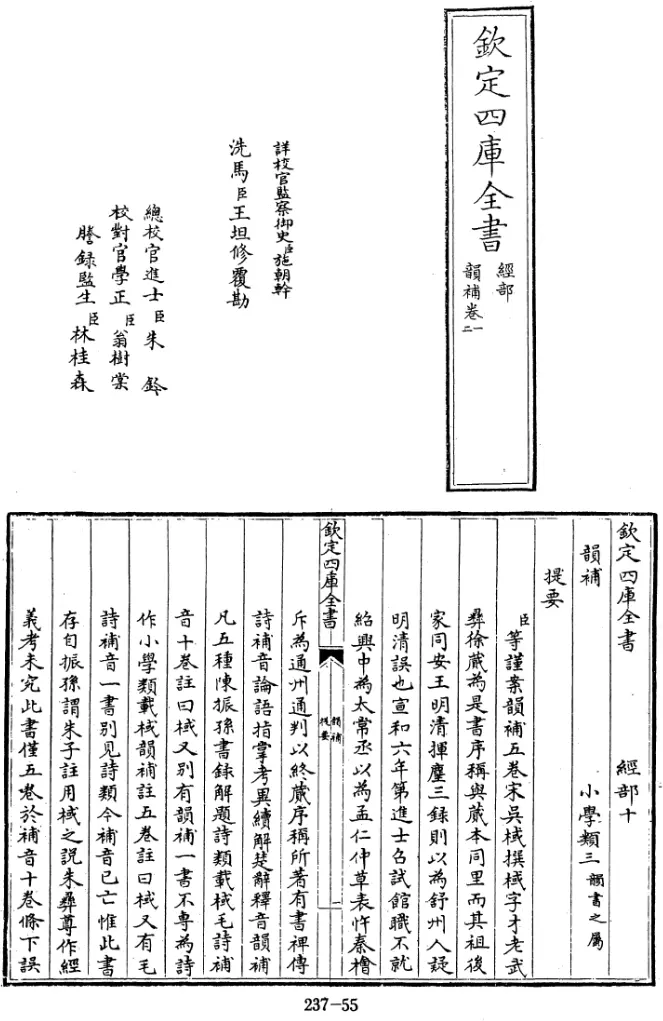 欽定四庫全書
經部
韻補卷一
二
詳校官監察御史臣施朝幹
洗馬臣王坦修覆勘
總校官進士臣朱鈐
校對官學正臣翁樹棠
謄録監生臣林桂森
欽定四庫全書 經部十
韻補 小學類三韻書之屬
提要
臣等謹案韻補五卷宋吳棫撰棫字才老武
彝徐蕆為是書序稱與蕆本同里而其祖後
家同安王明清揮麈三錄則以為舒州人疑
明清誤也宣和六年第進士召試館職不就
紹興中為太常丞以為孟仁仲草表忤秦檜
欽定四庫全書
韻補
提要
一
斥為通州通判以終蕆序稱所著有書裨傳
詩補音論語指掌考異續解楚辭釋音韻補
凡五種陳振孫書録解題詩類載棫毛詩補
音十卷註曰棫又別有韻補一書不專為詩
作小學類載棫韻補註五卷註曰棫又有毛
詩補音一書別見詩類今補音已亡惟此書
存自振孫謂朱子註用棫之説朱彝尊作經
義考未究此書僅五卷於補音十卷條下誤
237-55